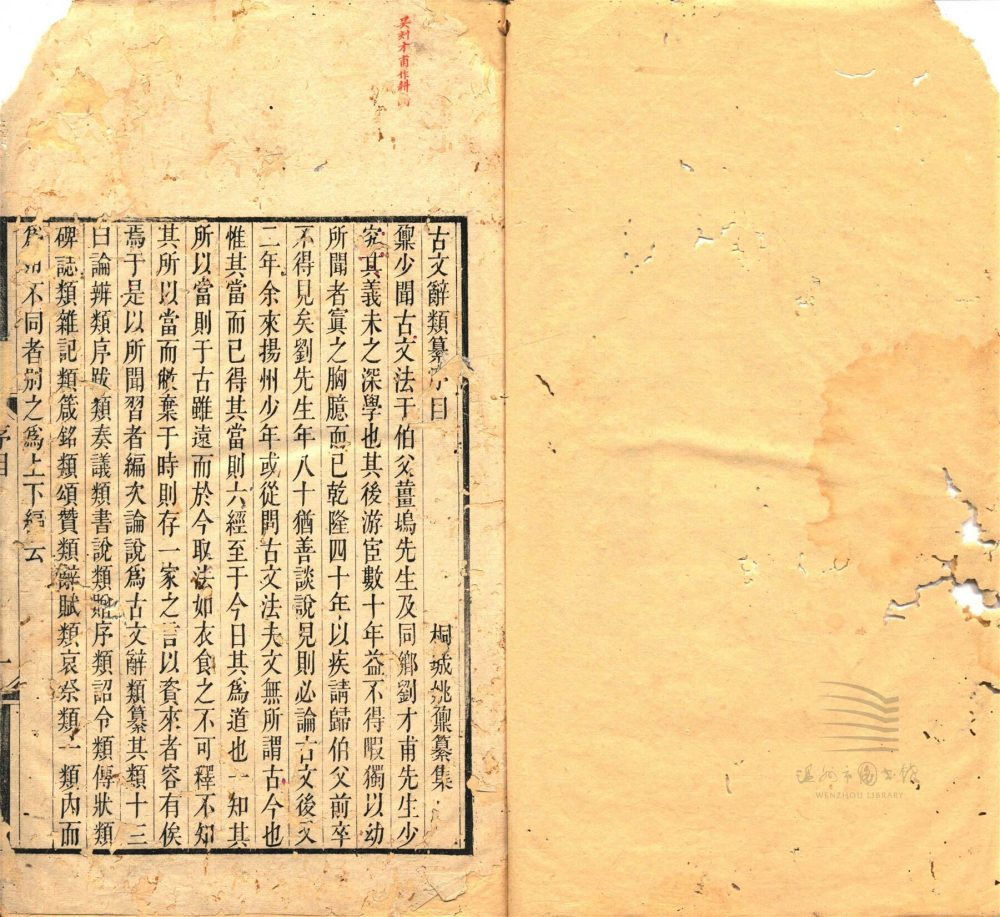 吴刻才甫作耕南
古文辭類纂序目
桐城姚鼐纂集
鼐少聞古文法于伯父薑塢先生及同鄉劉才甫先生少
究其義未之深學也其後游宦數十年益不得暇獨以幼
所聞者寘之胸臆而已乾隆四十年以疾請歸伯父前卒
不得見矣劉先生年八十猶善談說見則必論古文後又
二年余來揚州少年或從問古文法夫文無所謂古今也
惟其當而已得其當則六經至于今日其爲道也一知其
所以當則于古雖遠而於今取法如衣食之不可釋不知
其所以當而敝棄于時則存一家之言以資來者容有俟
焉于是以所聞習者編次論說爲古文辭類纂其類十三
曰論辨類序跋類奏議類書說類贈序類詔令類傳狀類
碑誌類雜記類箴銘類頌贊類辭賦類哀祭類一類內而
爲用不同者別之爲上下編云
序目
一
温州市圖书馆
WENZHOU LIBRARY